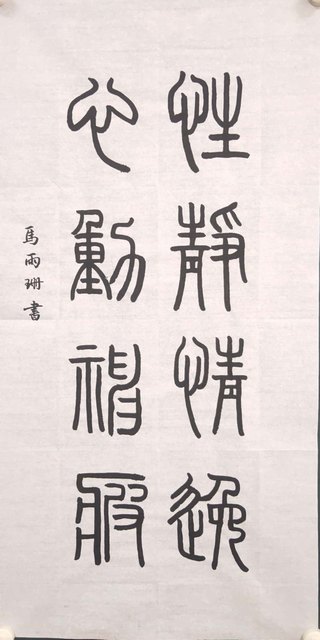 性靜情逸
心動神疲
馬雨珊書